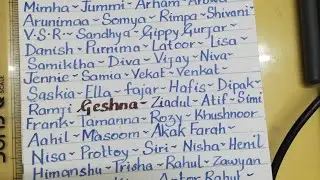 Mimha ~ Jummi ~ Arham ~
Arunimaa ~ Somya ~ Rimpa ~ Shivani
V.S.R ~ Sandhya ~ Gippy Gurjar ~
Danish ~ Purnima ~ Latoor ~ Lisa ~
Samiktha ~ Diva ~ Vijay ~ Niva ~
Jennie ~ Samia ~ Vekat ~ Venkat ~
Saskia ~ Ella ~ Fajar ~ Hafis ~ Dipak ~
Ramji Geshna ~ Ziadul ~ Atif ~ Simi
Frank ~ Tamanna ~ Rozy ~ Khushnoor
Aahil ~ Masoom ~ Akak Farah ~
Nisa ~ Prottoy ~ Siri ~ Nisha ~ Henil
Himanshu ~ Trisha ~ Rahul ~ Zawyan
Rahul ~